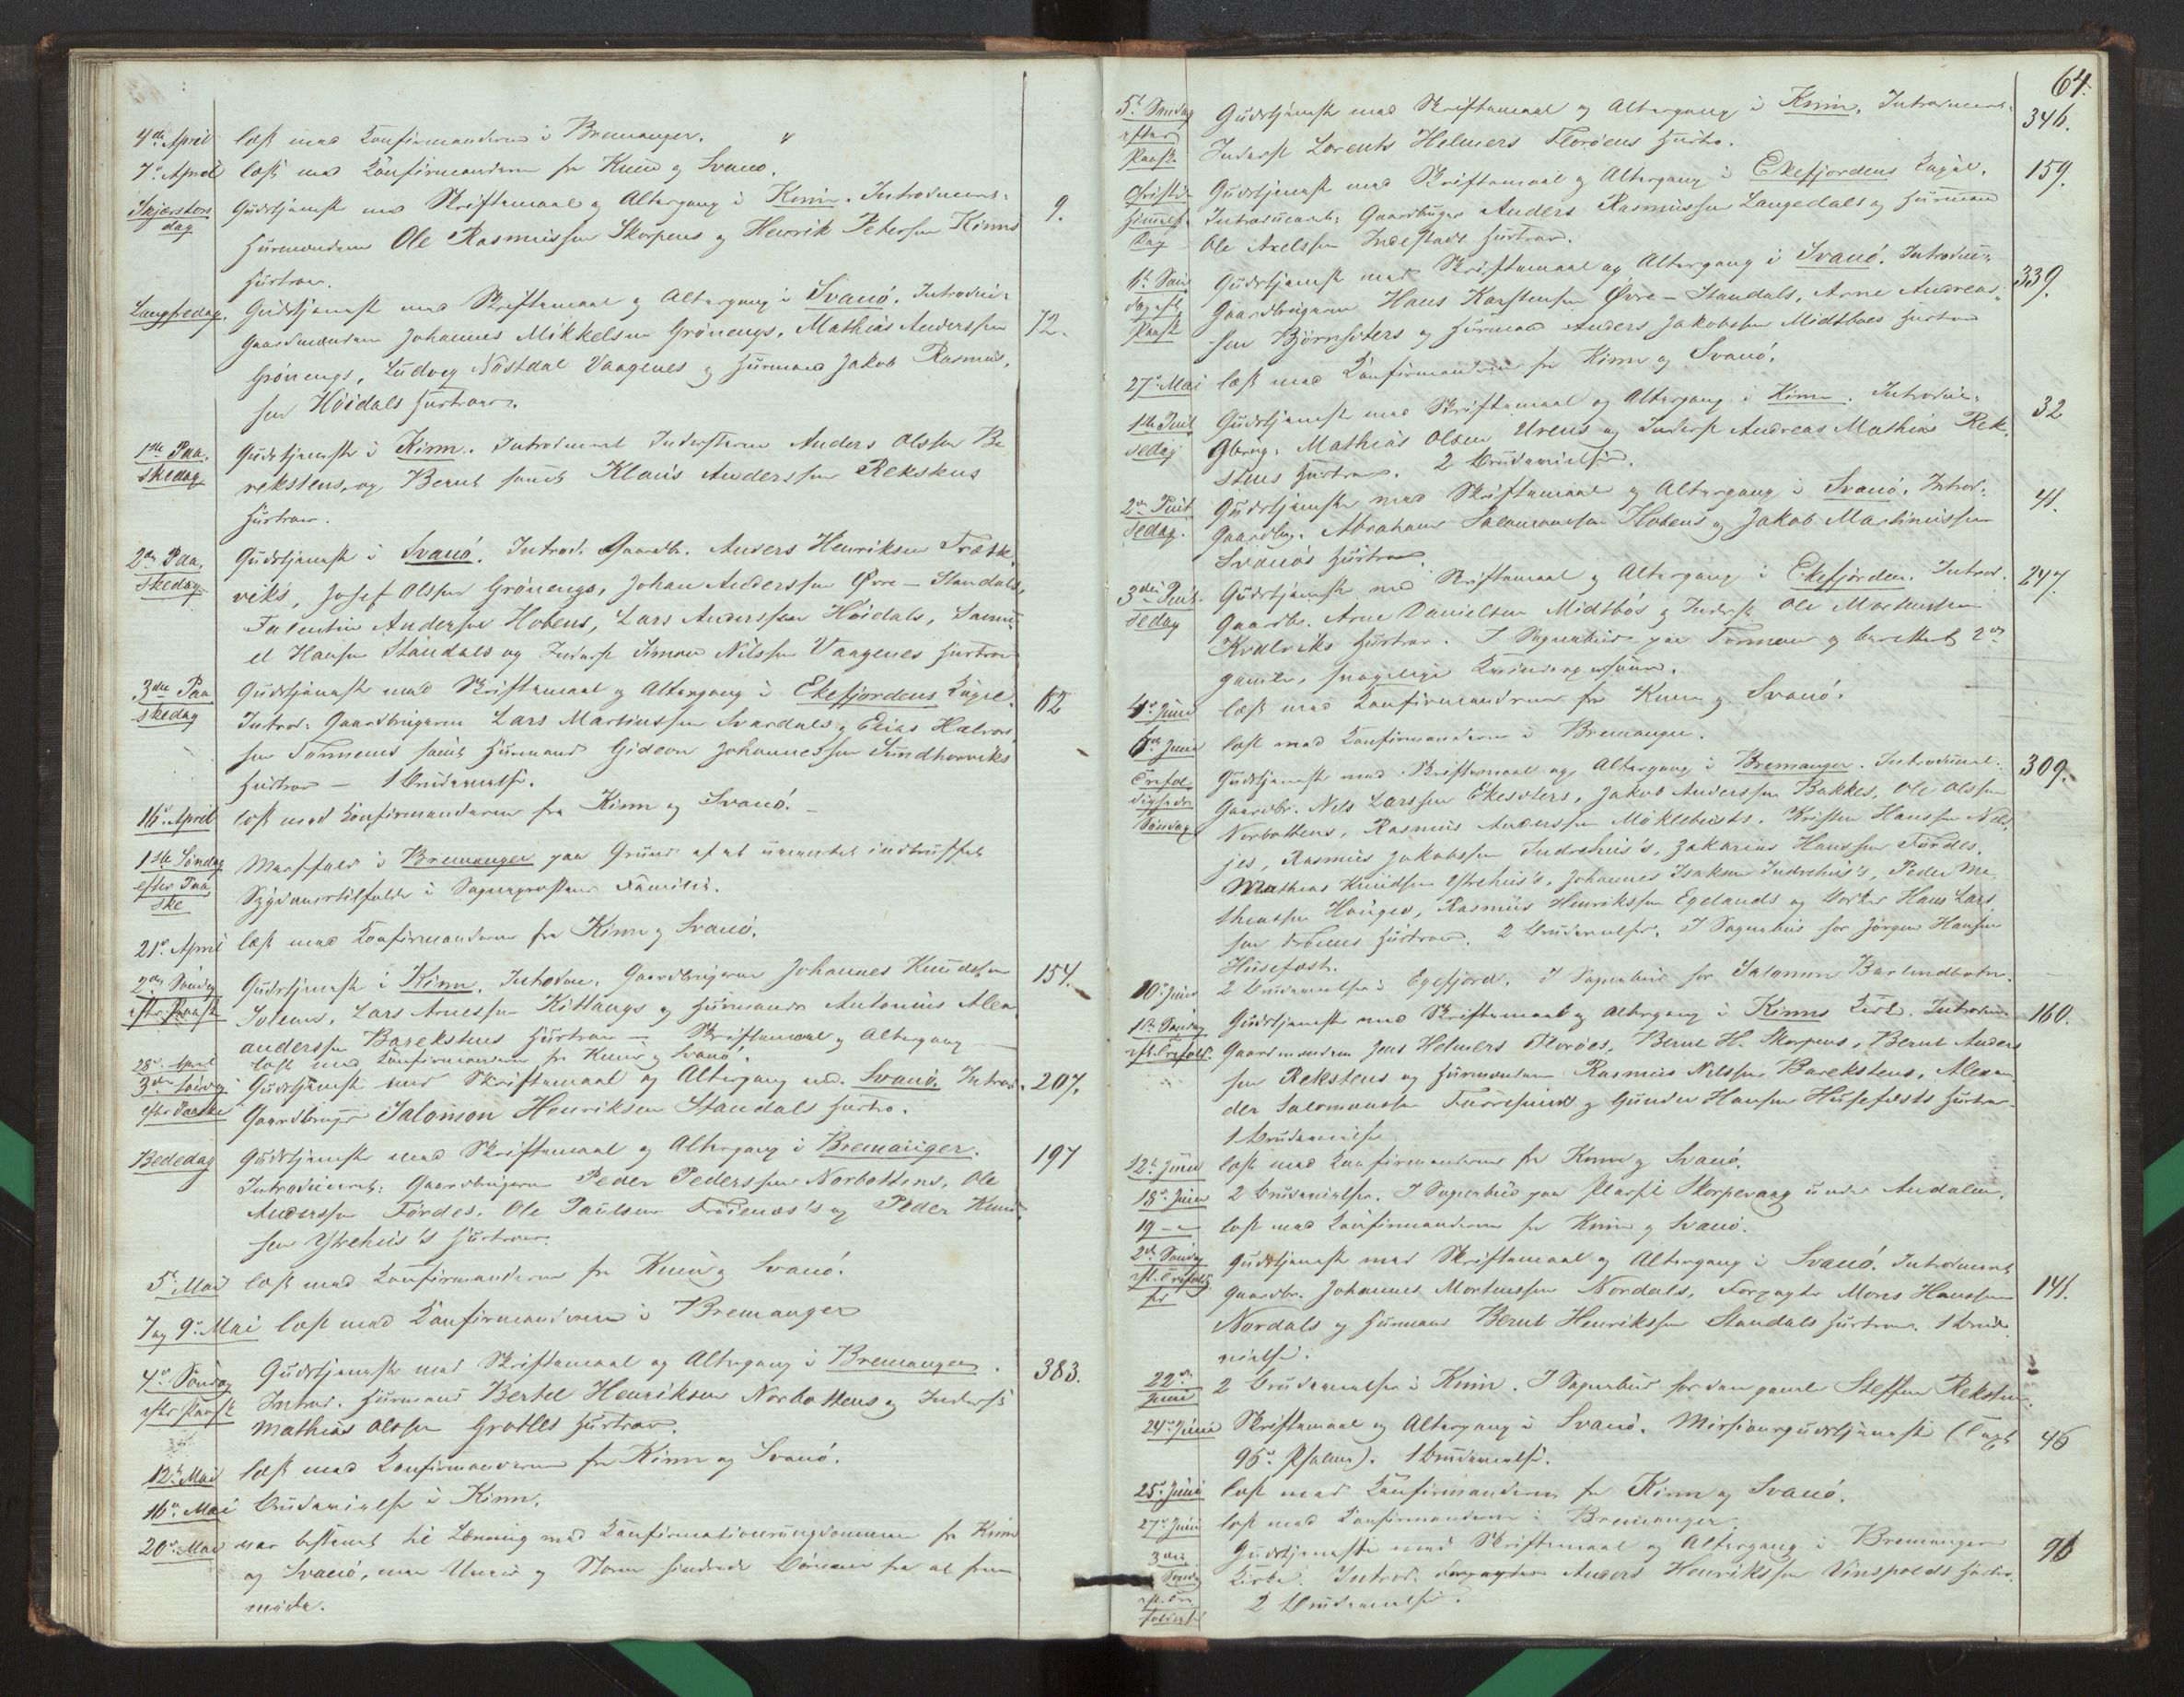 4de April læst med Konfirmanderne i Bremanger.
7de April læst med Konfirmanderne fra Kinn og Svanø.
Skjærstors Gudstjeneste med Skriftemaal og Altergang i Kinn. Introduceret: 9.
dag Husmændene Ole Rasmussen Skorpens og Henrik Petersen Kinns
Hustruer.
Langfredag. Gudstjeneste med Skriftemaal og Altergang i Svanø. Introduc: 72.
Gaardmændene Johannes Mikkelsen Grønengs, Mathias Anderssen
Grønengs, Ludvig Nøstdal Vaagenes og Husmand Jakob Rasmus,
sen Høidals Hustruer.
1ste Paa, Gudstjeneste i Kinn. Introduceret Indersterne Anders Olssen Ba
skedag rekstens, og Bernt samt Klaus Anderssen Rekstens
Hustruer.
2den Paa, Gudstjeneste i Svanø. Introd. Gaardb. Anders Henriksen
skedag viks, Josef Olssen Grønengs, Johan Anderssen Øvre-Standals,
Falentin Andersen Hovens, Lars Anderssen Høidals, Samu
el Hansen Standals og Inderst Simon Nilssen Vaagenes Hustruer
3die Paa Gudstjeneste med Skriftemaal og Altergang i Ekefjordens Kapel. 62
skedag Introd: Gaardbrugerne Lars Martinussen Svardals og Elias Halvor
sen Tonnems samt Husmand Gideon Johannessen Sundhorviks
Hustruer – 1 Brudevielse.
16de April læst med Konfirmanderne fra Kinn og Svanø. –
1ste Søndag Messefald i Bremanger paa Grund af et uventet indtruffet
efter Paa Sygdomstilfælde i Sognepræstens Familie.
ske
21de April læst med Konfirmanderne fra Kinn og Svanø.
2den Søndag Gudstjeneste i Kinn. Introduc. Gaardbrugerne Johannes Knudsen 154.
eftr. Paaske Solems, Lars Arnessen Kittangs og Husmand Antonius Alex
anderssen Barekstens Hustruer – Skriftemaal og Altergang
28de April læst med Konfirmanderne fra Kinn og Svanø.
3die Søndag Gudstjeneste med Skriftemaal og Altergang ved Svanø. Introd. 207.
eftr Paaske Gaardbruger Salomon Henriksen Standals Hustru.
Bededag Gudstjeneste med Skriftemaal og Altergang i Bremanger. 197
Introduceret: Gaardbrugerne Peder Pederssen Norbottens, Ole
Anderssen Førdes, Ole Paulsen Frøienæs's og Peder Knud
sen Ytrehus's Hustruer.
5te Mai læst med Konfirmanderne fra Kinn og Svanø.
7 og 9de Mai læst med Konfirmanderne i Bremanger
4de Søndag Gudstjeneste med Skriftemaal og Altergang i Bremanger. 383.
eftr Paaske Introd. Husmand Bertel Henriksen Norbottens og Inderst
Mathias Olssen Grotles Hustruer.
12te Mai læst med Konfirmanderne fra Kinn og Svanø.
16de Mai Brudevielse i Kinn.
20de Mai var bestemt til Læsning med Konfirmationsungdommen fra Kinn
og Svanø, men Uveir og Storm hindrede Børnene fra at frem
møde.
64.
5te Søndag Gudstjeneste med Skriftemaal og Altergang i Kinn. Introduceret: 346.
efter Inderst Lorents Helmers Florøens Hustru.
Paaske
Christi Gudstjeneste med Skriftemaal og Altergang i Ekefjordens Kapel. 159.
Himmelf. Introduceret: Gaardbruger Anders Rasmussen Langedals og Husmand
dag Ole Axelssen Indestads Hustruer.
6te Søn Gudstjeneste med Skriftemaal og Altergang i Svanø. Introduc: 339.
dag eft. Gaardbrugerne Hans Karstensen Øvre-Standals, Arne Andreas
Paaske sen Bjørnseters og Husmand Anders Jakobssen Midtbøes Hustruer
27de Mai læst med Konfirmanderne fra Kinn og Svanø.
1ste Pint Gudstjeneste med Skriftemaal og Altergang i Kinn. Introduc: 32
sedag Gbrug. Mathias Olsen Urens og Inderst Andreas Mathias Rek
stens Hustruer. 2 Brudevielser.
2den Pint Gudstjeneste med Skriftemaal og Altergang i Svanø. Introd: 41.
sedag. Gaardbr. Abraham Salomonsen Hovens og Jakob Martinussen
Svanøs Hustruer.
3die Pint Gudstjeneste med Skriftemaal og Altergang i Ekefjorden. Introd. 247.
sedag Gaardb. Arne Danielsen Midtbøs og Inderst Ole Mortensen
Kvalviks Hustruer. I Sognebud paa Tonnem og berettet 2de
gamle, svagelige Kvindespersoner.
4de Juni læst med Konfirmanderne fra Kinn og Svanø.
6te Juni læst med Konfirmanderne i Bremanger.
Trefol Gudstjeneste med Skriftemaal og Altergang i Bremanger. Introduceret. 309.
digheds Gaardbr. Nils Larssen Ekesæters, Jakob Anderssen Bakkes, Ole Olssen
Søndag Norbottens, Rasmus Anderssen Møklebusts, Kristen Hanssen
Rasmus Jakobssen Indrehus's, Zakarias Hanssen Førdes,
Mathias Knudsen Ytrehus's, Johannes Isaksen Indrehus's, Peder Ma
theussen Hauges, Rasmus Henrikssen Egelands og Hans Lars
sen Hustruer. 2 Brudevielser. I Sognebud for Jørgen Hansen
Husefest.
10de Juni 2 Brudevielser i Egefjord. I Sognebud for Salomon Barlindbotn. –
1ste Søndag Gudstjeneste med Skriftemaal og Altergang i Kinns Kirke. Introduc: 160.
eft. Trefold. Gaardmændene Jens Helmers Florøes, Bernt H. Skorpens, Bernt Anders
sen Rekstens og Husmændene Rasmus Nilssen Barekstens, Alexan
der Salomonsen Færesund og Gunder Hansen Husefests Hustruer.
1 Brudevielse
12te Juni læst med Konfirmanderne fra Kinn og Svanø.
18de Juni 2 Brudevielser. I Sognebud paa Pladsen Skorpevaag under Andalen.
19 – læst med Konfirmanderne fra Kinn og Svanø.
2den Søndag Gudstjeneste med Skriftemaal og Altergang i Svanø. Introduceret
eft. Trefoldig Gaardbr. Johannes Mortenssen Nordals, Forpagter Mons Hanssen 141.
hed Nordals og Husmand Bernt Henrikssen Standals Hustruer. 1 Brude
vielse.
22de Juni 2 Brudevielser i Kinn. I Sognebud for den gamle Steffen Reksten.
24de Juni Skriftemaal og Altergang i Svanø. Missionsgudstjeneste (Text 46
96de Psalme). 1 Brudevielse.
25de Juni læst med Konfirmanderne fra Kinn og Svanø.
27de Juni læst med Konfirmanderne i Bremanger.
3die Gudstjeneste med Skriftemaal og Altergang i Bremangers 96
Søndag Kirke. Introd. Forpagter Anders Henrikssen Vinspolds Hustru.
eft. Tre 2 Brudevielser.
foldighed